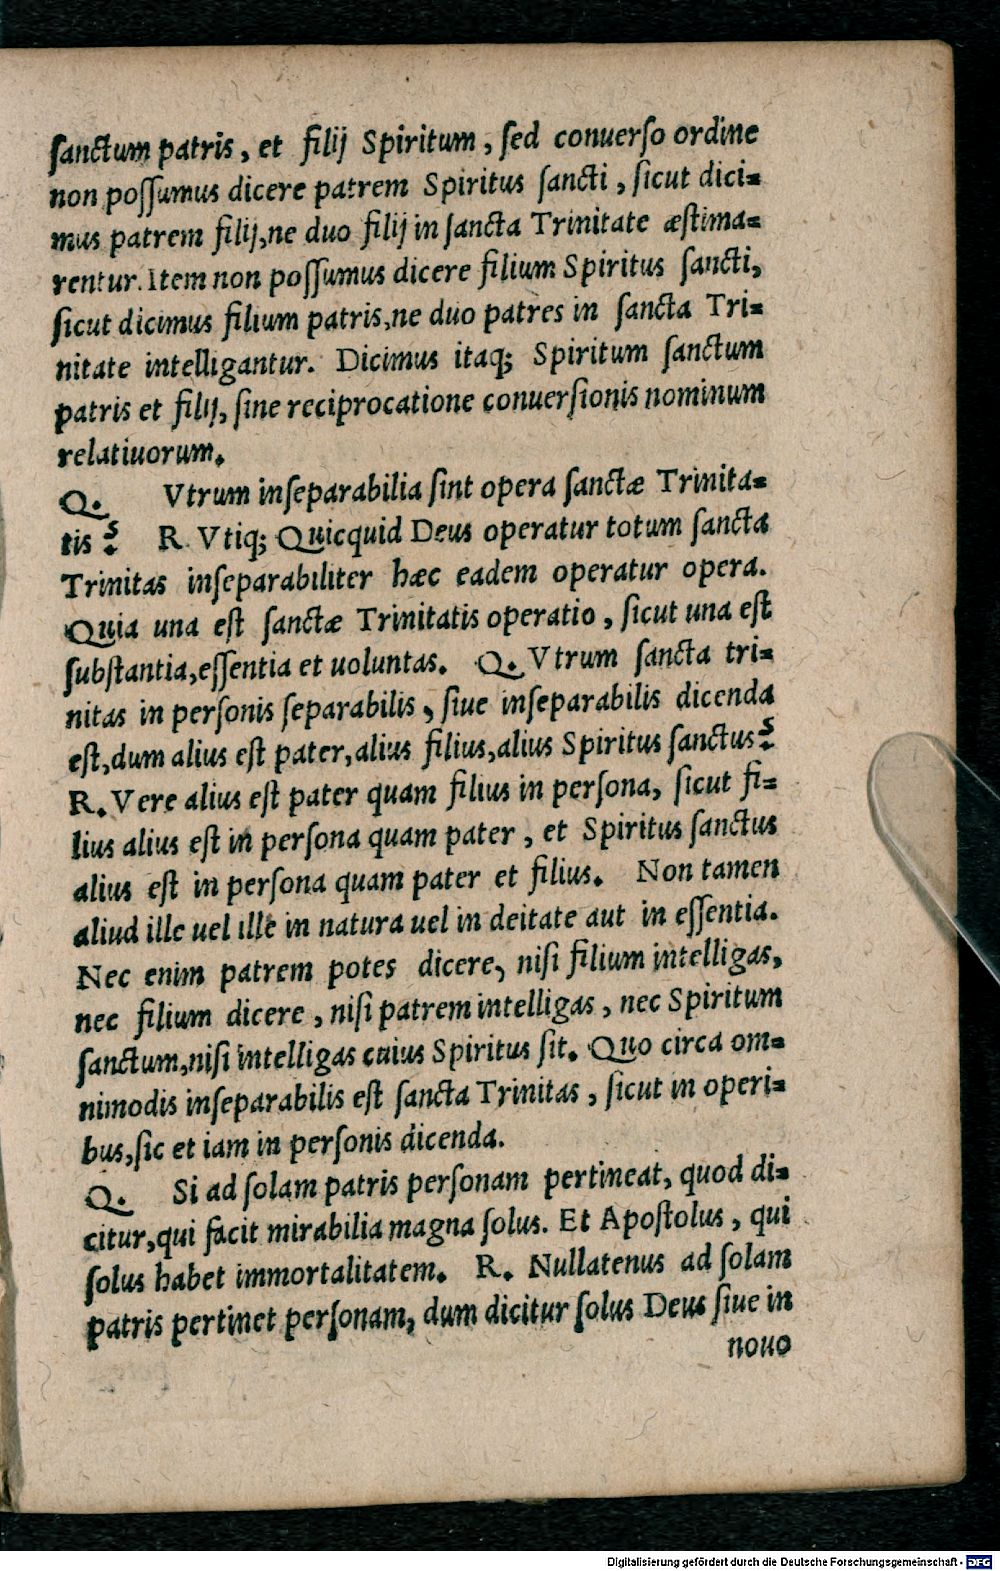 sanctum patris, et filij Spiritum, sed conuerso ordine
non possumus dicere patrem Spiritus sancti, sicut dici=
mus patrem filij, ne duo filij in sancta Trinitate æstima=
rentur. Item non possumus dicere filium Spiritus sancti,
sicut dicimus filium patris, ne duo patres in sancta Tri=
nitate intelligantur. Dicimus itaq; Spiritum sanctum
patris et filij, sine reciprocatione conuersionis nominum
relatiuorum.
Q. Vtrum inseparabilia sint opera sanctæ Trinita=
tis? R. Vtiq; Quicquid Deus operatur totum sancta
Trinitas inseparabiliter hæc eadem operatur opera.
Quia una est sanctæ Trinitatis operatio, sicut una est
substantia, essentia et uoluntas. Q. Vtrum sancta tri=
nitas in personis separabilis, siue inseparabilis dicenda
est, dum alius est pater, alius filius, alius Spiritus sanctus?
R. Vere alius est pater quam filius in persona, sicut fi=
lius alius est in persona quam pater, et Spiritus sanctus
alius est in persona quam pater et filius. Non tamen
aliud ille uel ille in natura uel in deitate aut in essentia.
Nec enim patrem potes dicere, nisi filium intelligas,
nec filium dicere, nisi patrem intelligas, nec Spiritum
sanctum, nisi intelligas cuius Spiritus sit. Quo circa om=
nimodis inseparabilis est sancta Trinitas, sicut in operi=
bus, sic et iam in personis dicenda.
Q. Si ad solam patris personam pertineat, quod di=
citur, qui facit mirabilia magna solus. Et Apostolus, qui
solus habet immortalitatem. R. Nullatenus ad solam
patris pertinet personam, dum dicitur solus Deus siue in
nouo
Digitalisierung gefördert durch die Deutsche Forschungsgemeinschaft - DFG